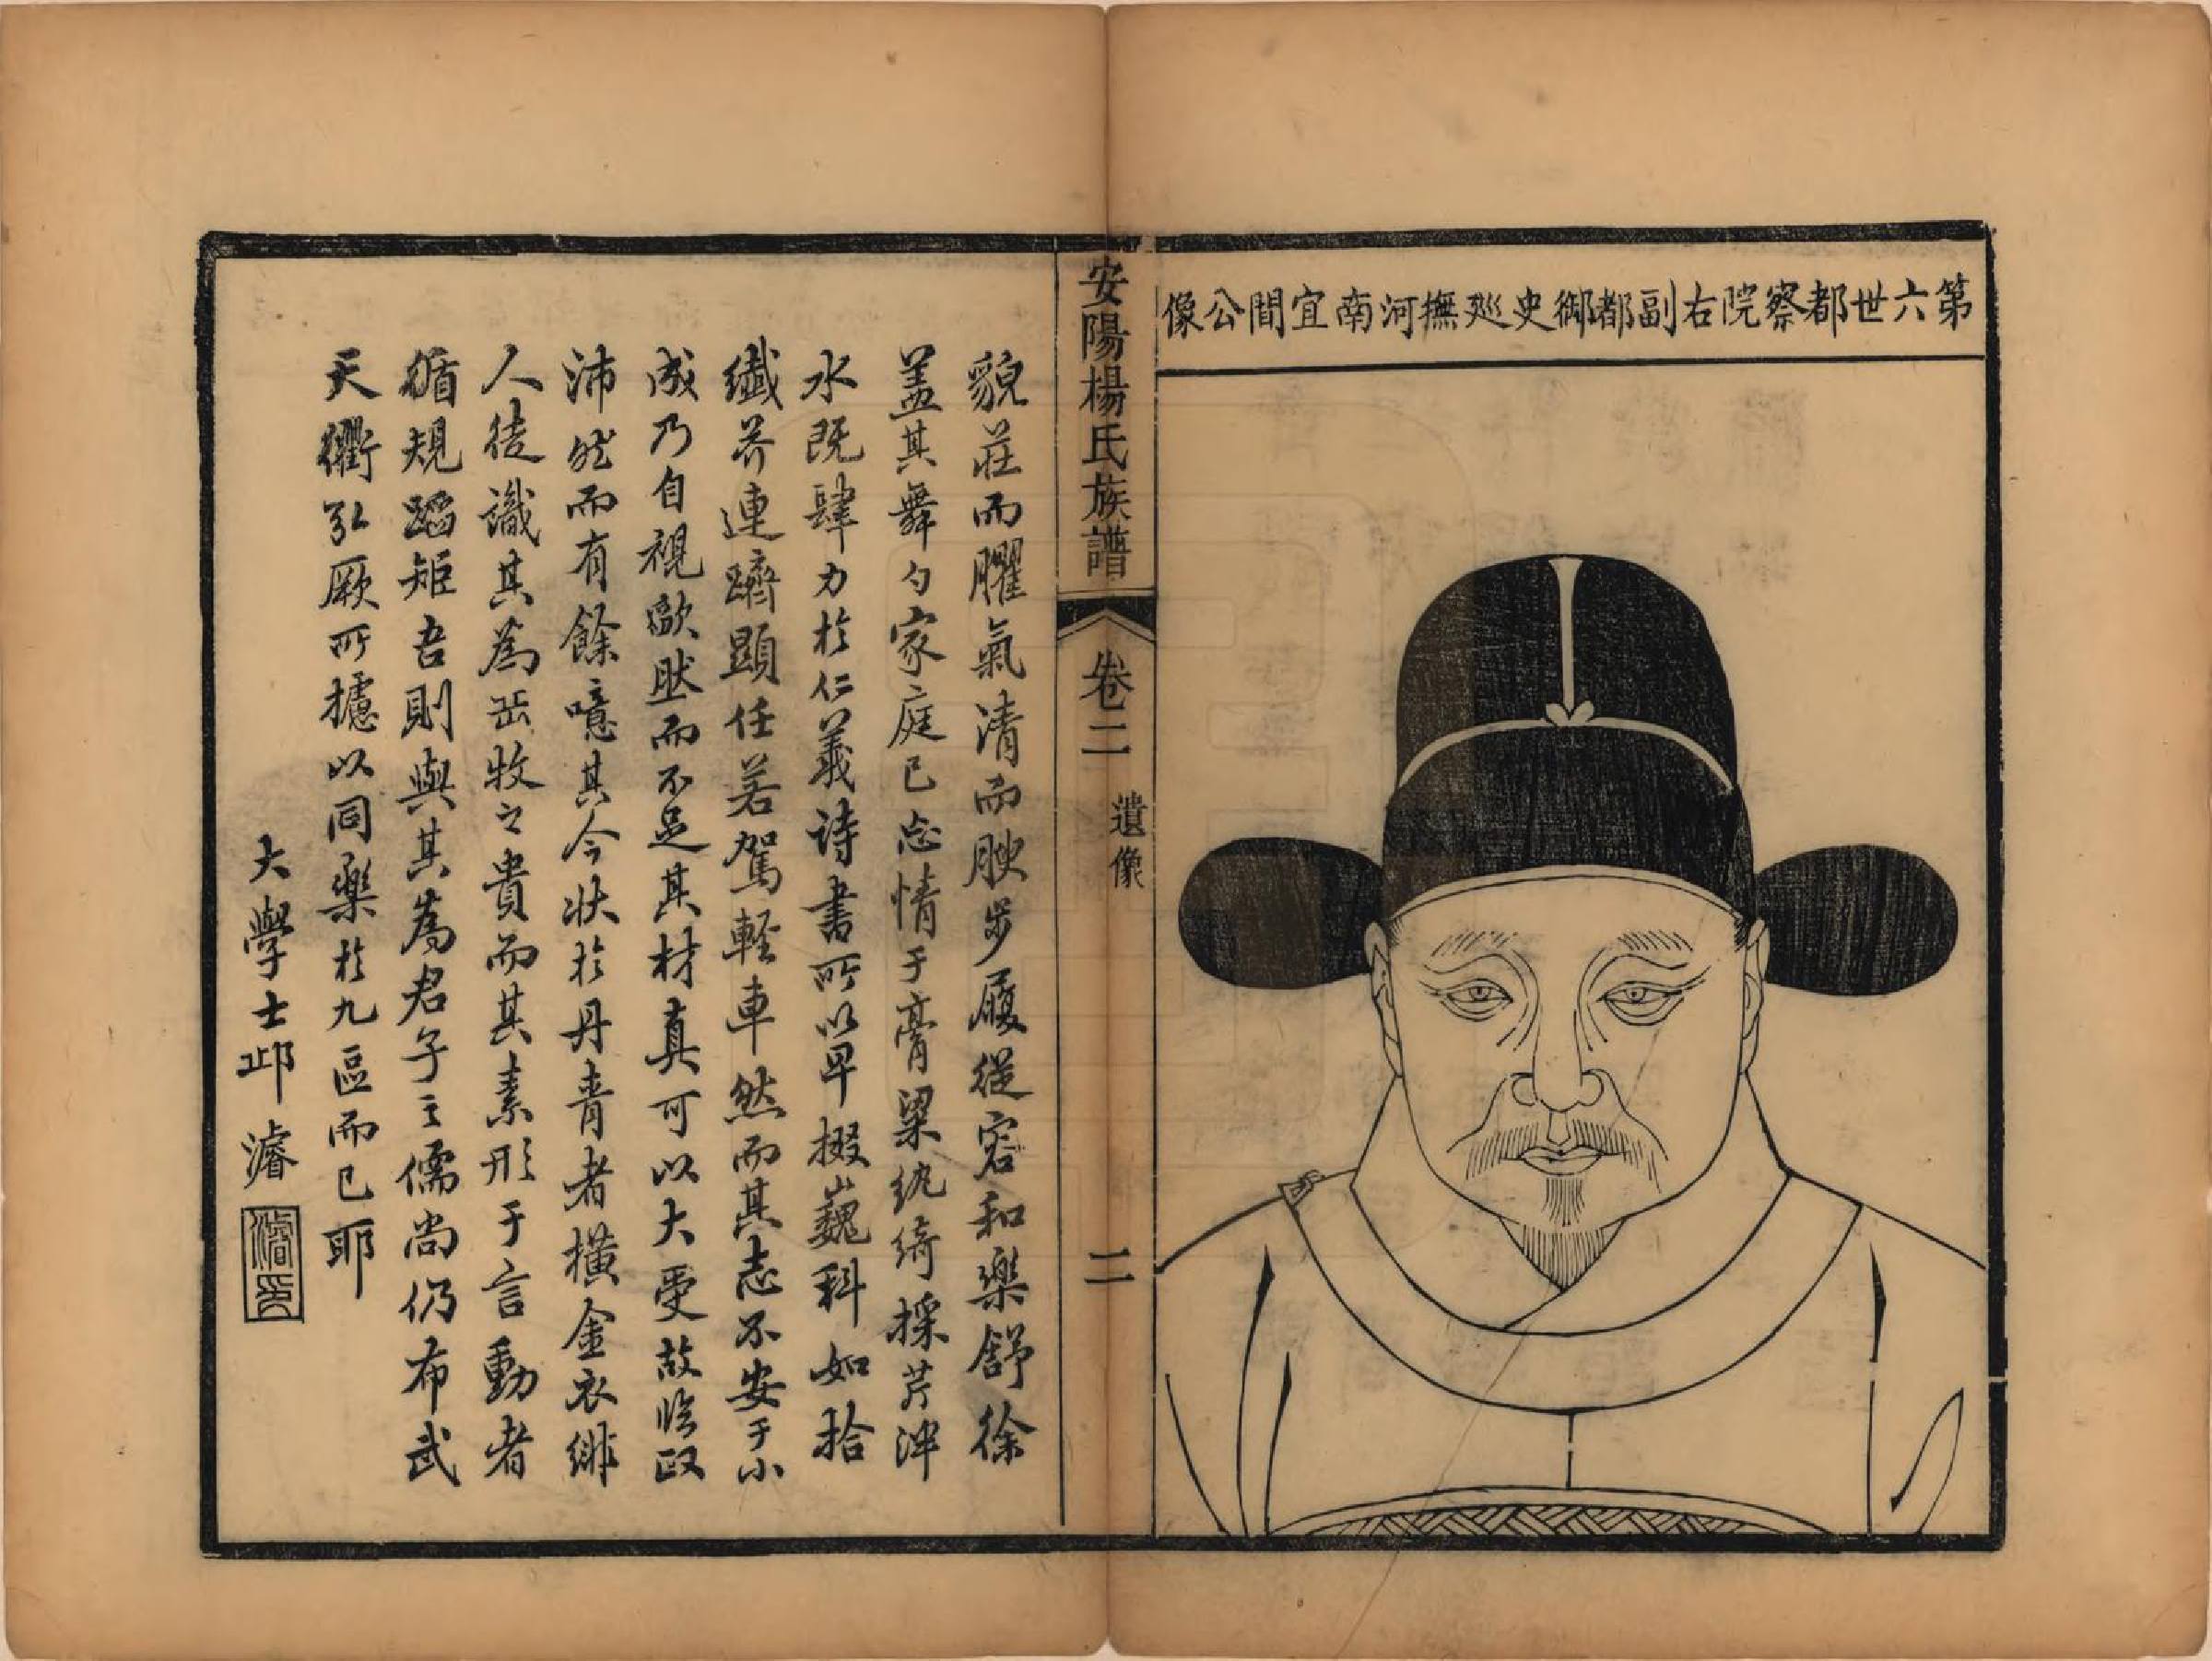 第六世都察院右副都御史廵撫河南宜閒公像
安陽楊氏族譜
卷二
遺像
二
貌莊而臞氣清而腴步履從容和樂舒徐
盖其舞勺家庭已忘情于膏粱紈綺採芹泮
水既肆力於仁義詩書所以早掇巍科如拾
纖芥連躋顯任若駕輕車然而其志不安于小
成乃自視歉然而不足其材真可以大受故臨政
沛然而有餘噫其今狀於丹青者橫金衣緋
人徒識其為岳牧之貴而其素形于言動者
循規蹈矩吾則與其為君子之儒尚仍布武
天衢弘厥所攄以同樂於九區而已耶
大學士邱濬
濬